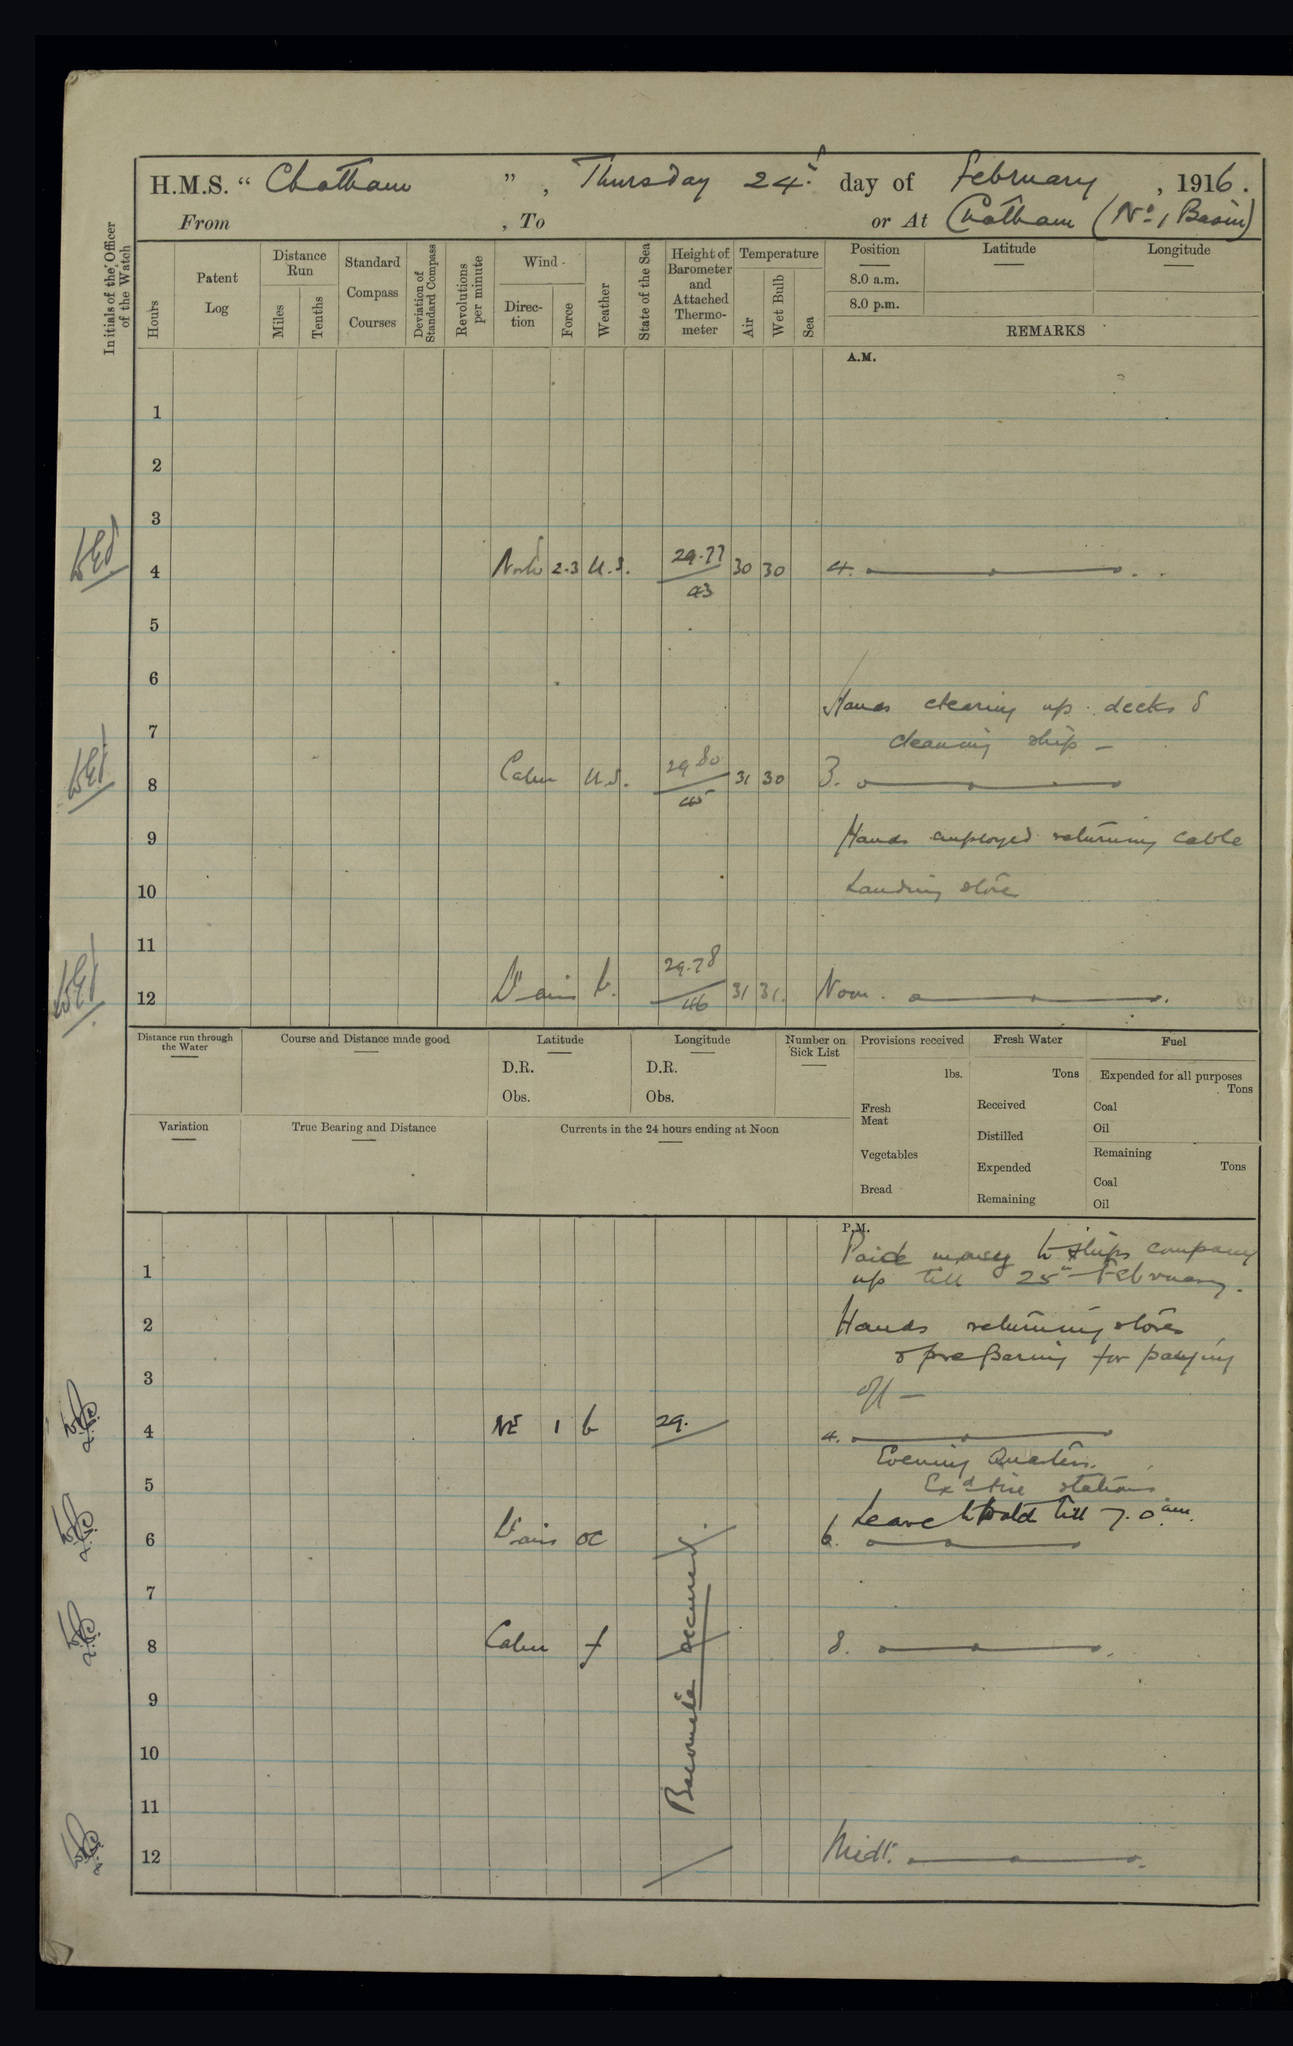 H.M.S. " Chatham ", Thursday 24th day of February, 1916.
From , To or At Chatham (No 1 Basin)
Initials of the Officer of the Watch
Hours
Patent Log
Distance Run
Miles
Tenths
Standard Compass Courses
Deviation of Standard Compass
Revolutions per minute
Wind
Direction
Force
Weather
State of the Sea
Height of Barometer and Attached Thermometer
Temperature
Air
Wet Bulb
Sea
Position Latitude Longitude
8.0 a.m.
8.0 p.m.
REMARKS
A.M.
1
2
3
4 North 2-3 u.s. 29.77 / 43 30 30 4.
5
6
Hands clearing up decks &
7 cleaning ship -
8 Calm u.s. 29.80 / 45 31 30 8.
9 Hands employed returning cable
10 Landing store
11
12 Vairs b. 29.78 / 46 31 31. Noon.
Distance run through the Water
Course and Distance made good
Latitude
D.R.
Obs.
Longitude
D.R.
Obs.
Number on Sick List
Provisions received
lbs.
Fresh Meat
Vegetables
Bread
Fresh Water
Tons
Received
Distilled
Expended
Remaining
Fuel
Expended for all purposes
Tons
Coal
Oil
Remaining
Tons
Coal
Oil
Variation
True Bearing and Distance
Currents in the 24 hours ending at Noon
P.M.
Paid money to ships company
1 up till 25th February.
2 Hands returning stores
& preparing for paying
3 off -
4 NE 1 b 29. 4.
Evening Quarters.
5 Exd fire stations
Leave to till 7.0 am.
6 Vairs oc 6.
7
8 Calm f 8.
Barometer secured.
9
10
11
12 Midt.